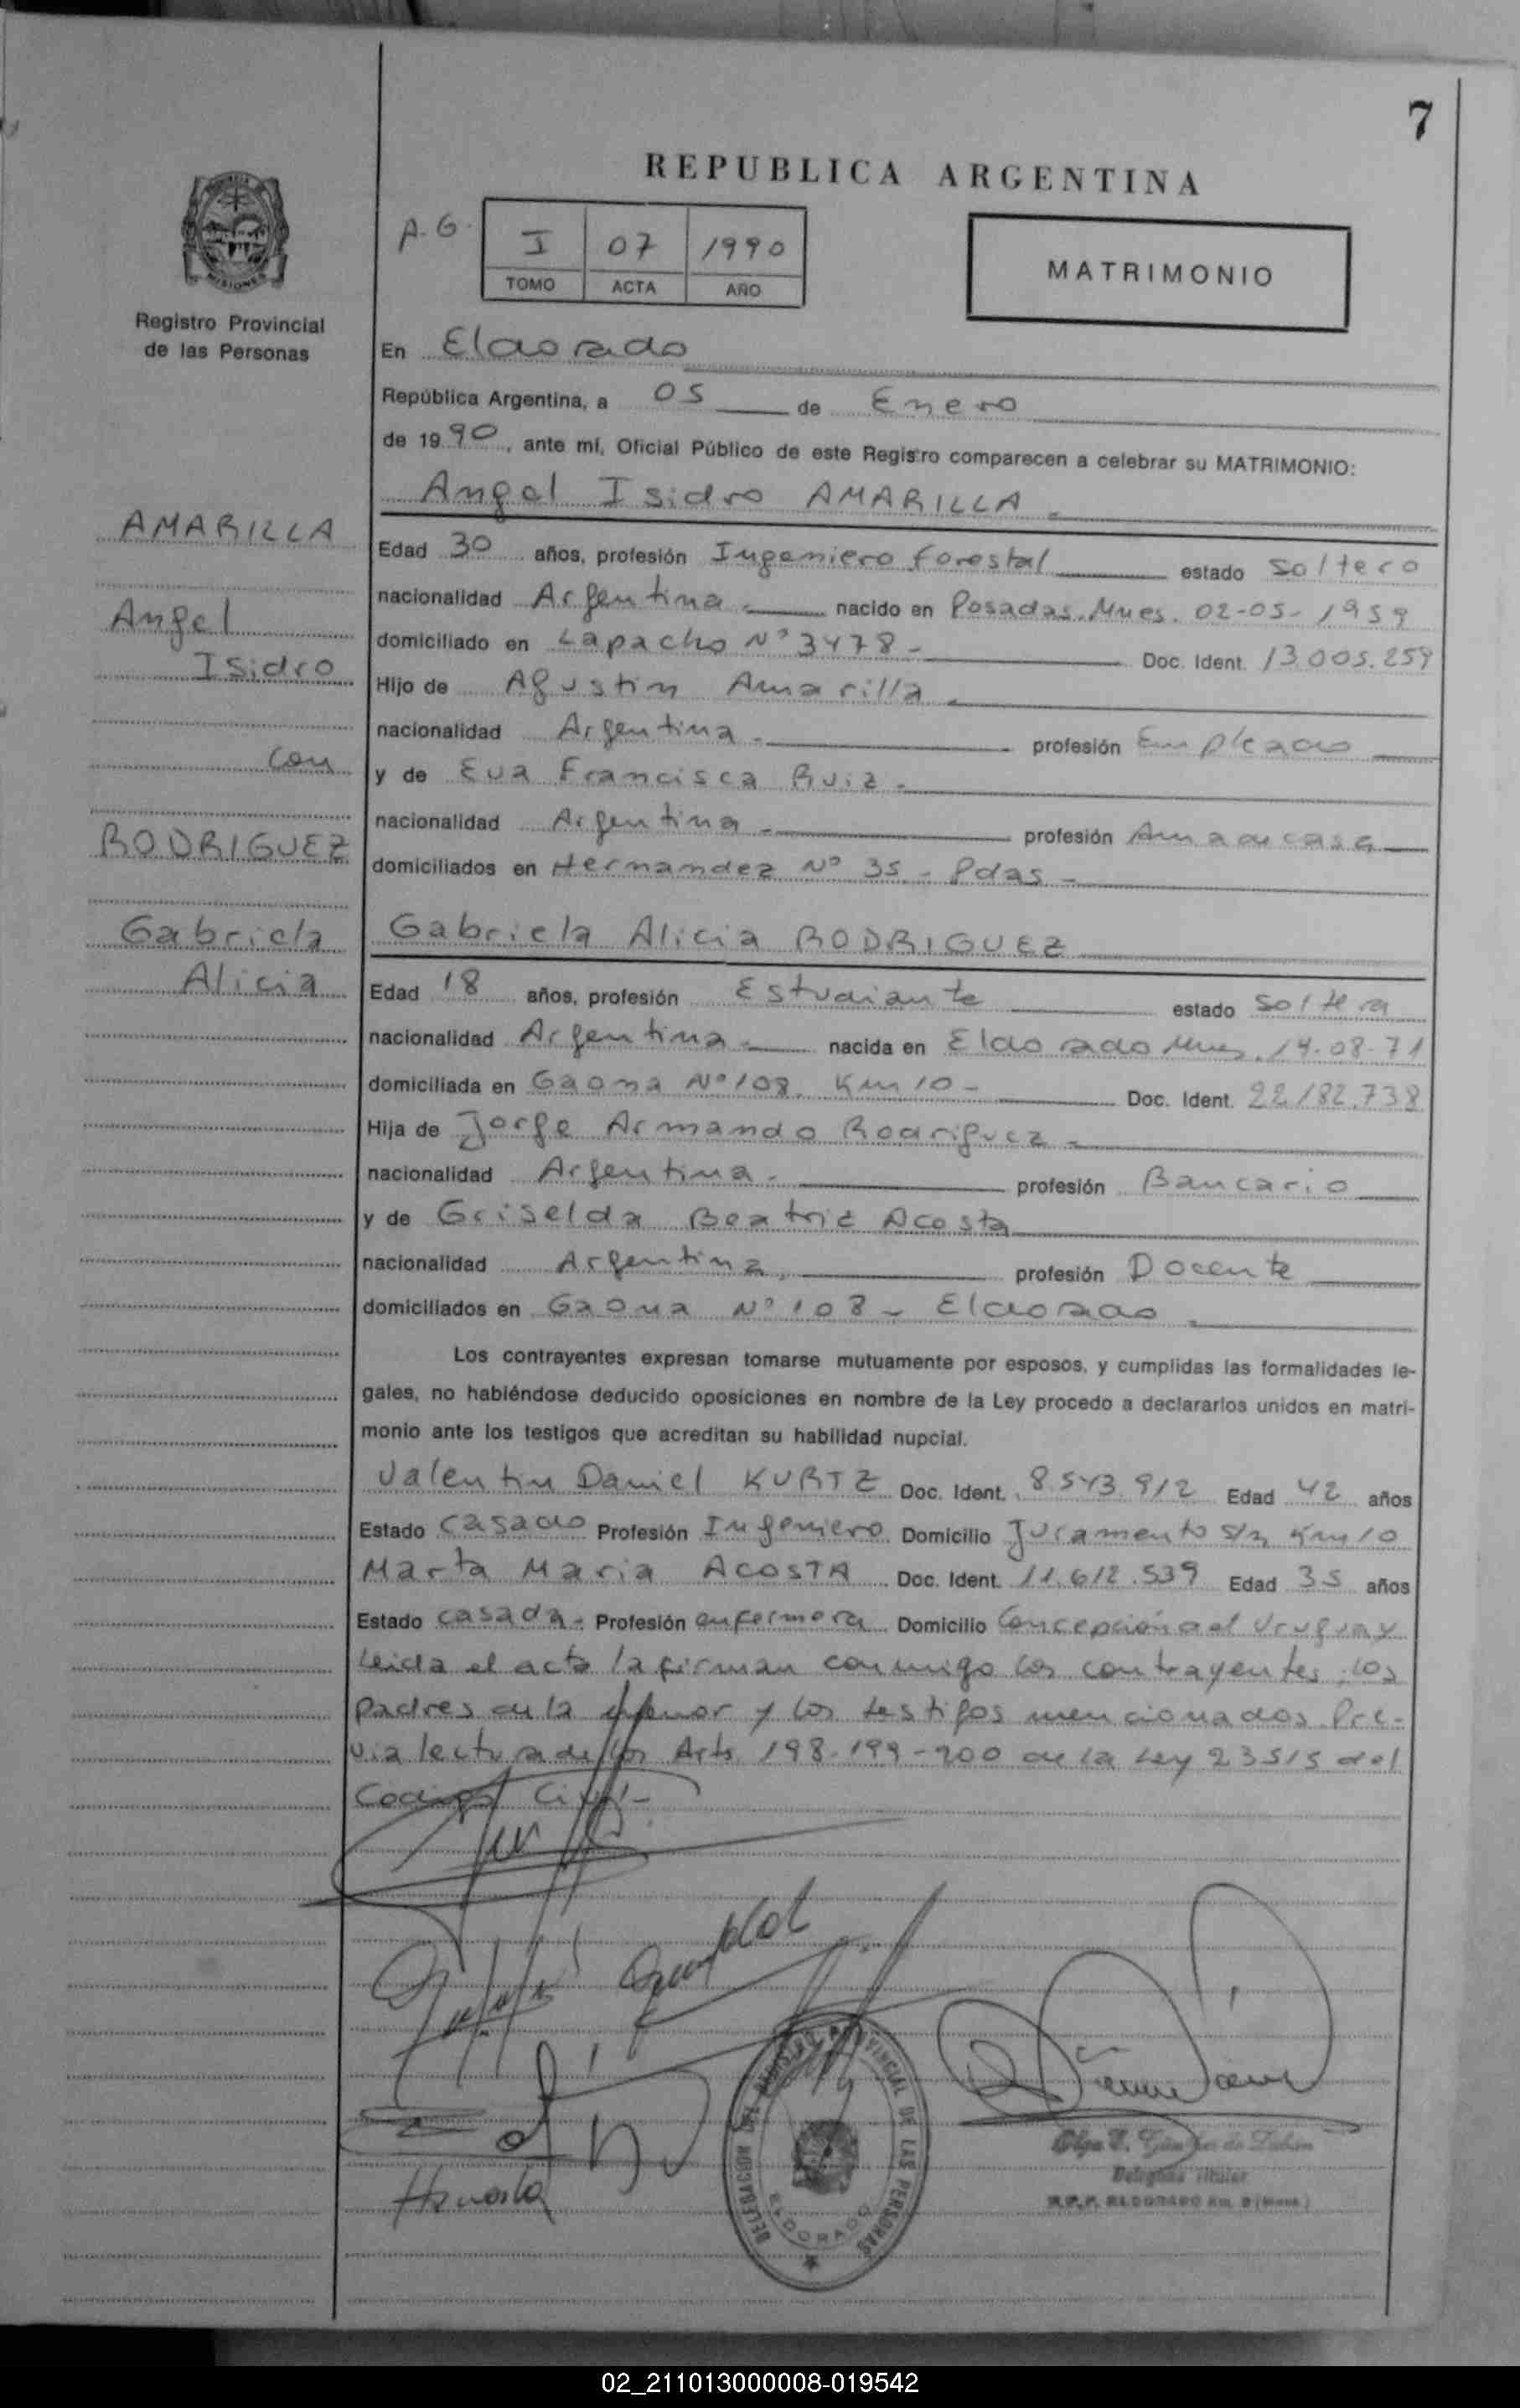 7
REPUBLICA ARGENTINA
A.G. I 07 1990
TOMO ACTA AÑO
MATRIMONIO
Registro Provincial
de las Personas
En Eldorado
República Argentina, a 05 de Enero
de 1990, ante mí, Oficial Público de este Registro comparecen a celebrar su MATRIMONIO:
Angel Isidro AMARILLA
AMARILLA
Angel
Isidro
con
RODRIGUEZ
Gabriela
Alicia
Edad 30 años, profesión Ingeniero Forestal estado soltero
nacionalidad Argentina.- nacido en Posadas. Mnes. 02-05-1959
domiciliado en Lapacho N° 3478 - Doc. Ident. 13.005.259
Hijo de Agustin Amarilla
nacionalidad Argentina.- profesión Empleado
y de Eva Francisca Ruiz.-
nacionalidad Argentina.- profesión Ama de casa
domiciliados en Hernandez N° 35 - Pdas -
Gabriela Alicia RODRIGUEZ
Edad 18 años, profesión Estudiante estado soltera
nacionalidad Argentina.- nacida en Eldorado Mnes. 14-08-71
domiciliada en Gaona N° 108. Km 10 - Doc. Ident. 22.182.738
Hija de Jorge Armando Rodriguez -
nacionalidad Argentina.- profesión Bancario
y de Griselda Beatriz Acosta
nacionalidad Argentina. profesión Docente
domiciliados en Gaona N° 108 - Eldorado
Los contrayentes expresan tomarse mutuamente por esposos, y cumplidas las formalidades le-
gales, no habiéndose deducido oposiciones en nombre de la Ley procedo a declararlos unidos en matri-
monio ante los testigos que acreditan su habilidad nupcial.
Valentin Daniel KURTZ Doc. Ident. 8.543.912 Edad 42 años
Estado casado Profesión Ingeniero Domicilio Juramento s/n Km 10
Marta Maria ACOSTA Doc. Ident. 11.612.539 Edad 35 años
Estado casada - Profesión enfermera Domicilio Concepción del Uruguay
Leida el acta la firman conmigo los contrayentes, los
padres de la menor y los testigos mencionados. Pre-
via lectura de los Arts. 198-199-200 de la Ley 23515 del
Codigo Civil.-
DELEGACION DEL REGISTRO PROVINCIAL DE LAS PERSONAS
ELDORADO
Delegada Titular
R.P.P. ELDORADO Km. 9 (Mnes.)
02_211013000008-019542